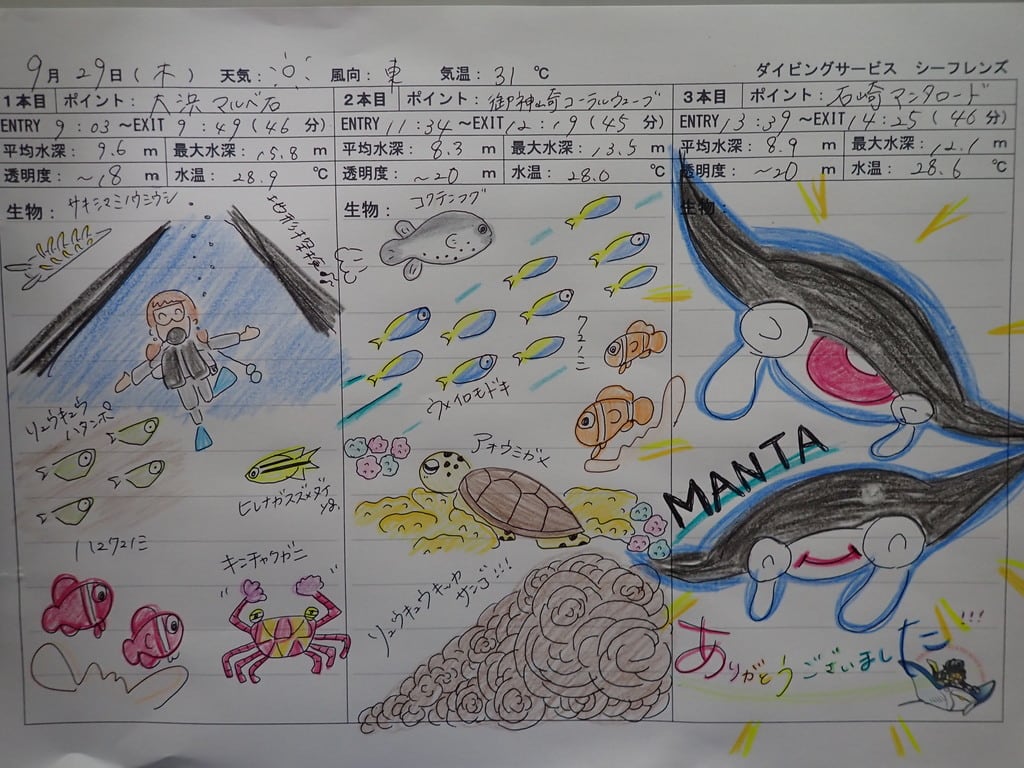 9月 29日(木) 天気: 風向: 東 気温: 31 ℃
ダイビングサービス シーフレンズ
1本目 ポイント: 大浜マルベ石
ENTRY 9:03 ~EXIT 9:49 (46 分)
平均水深: 9.6 m 最大水深: 15.8 m
透明度: ~18 m 水温: 28.9 ℃
生物: サキシマミノウミウシ
地形も最高♪
リュウキュウ
ハタンポ
ヒレナガスズメダイ
yg.
ハマクマノミ
キンチャクガニ
2本目 ポイント: 御神崎コーラルウェーブ
ENTRY 11:34 ~EXIT 12:19 (45 分)
平均水深: 8.3 m 最大水深: 13.5 m
透明度: ~20 m 水温: 28.0 ℃
生物: コクテンフグ
クマノミ
ウメイロモドキ
アオウミガメ
リュウキュウキッカ
サンゴ!!!
3本目 ポイント: 石崎マンタロード
ENTRY 13:39 ~EXIT 14:25 (46 分)
平均水深: 8.9 m 最大水深: 12.1 m
透明度: ~20 m 水温: 28.6 ℃
生物:
MANTA
ありがとうございました!!!